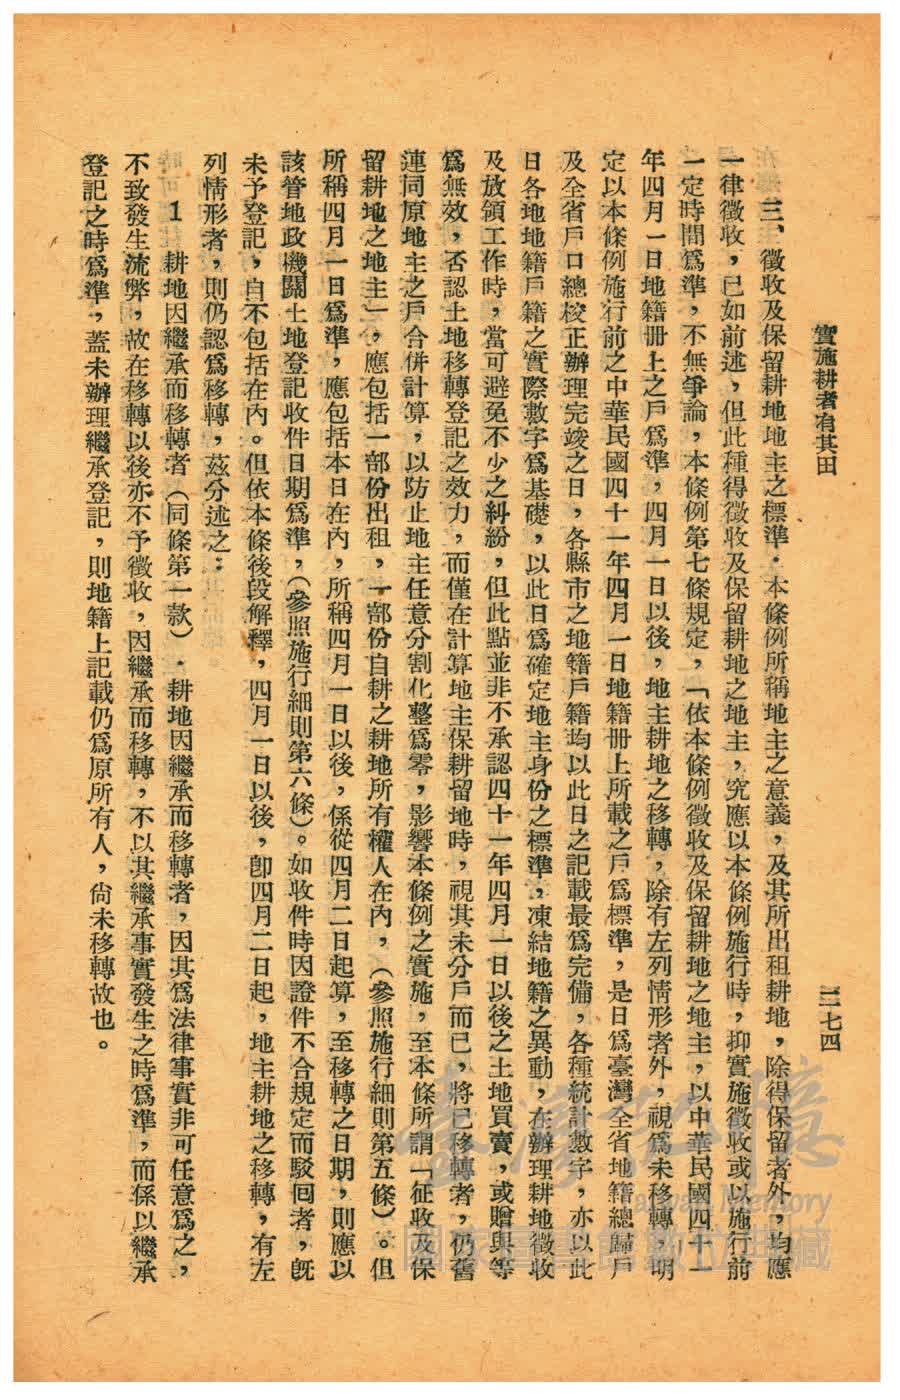 實施耕者有其田
二七四
三、徵收及保留耕地地主之標準．本條例所稱地主之意義，及其所出租耕地，除得保留者外，均應
一律徵收，已如前述，但此種得徵收及保留耕地之地主，究應以本條例施行時，抑實施徵收或以施行前
一定時間爲準，不無爭論，本條例第七條規定，「依本條例徵收及保留耕地之地主，以中華民國四十一
年四月一日地籍冊上之戶爲準，四月一日以後，地主耕地之移轉，除有左列情形者外，視爲未移轉，明
定以本條例施行前之中華民國四十一年四月一日地籍冊上所載之戶爲標準，是日爲臺灣全省地籍總歸戶
及全省戶口總校正辦理完竣之日，各縣市之地籍戶籍均以此日之記載最爲完備，各種統計數字，亦以此
日各地地籍戶籍之實際數字爲基礎，以此日爲確定地主身份之標準，凍結地籍之異動，在辦理耕地徵收
及放領工作時，當可避免不少之糾紛，但此點並非不承認四十一年四月一日以後之土地買賣，或贈與等
爲無效，否認土地移轉登記之效力，而僅在計算地主保耕留地時，視其未分戶而已，將已移轉者，仍舊
連同原地主之戶合併計算，以防止地主任意分割化整爲零，影響本條例之實施，至本條所謂「征收及保
留耕地之地主」，應包括一部份出租，一部份自耕之耕地所有權人在內，（參照施行細則第五條）。但
所稱四月一日爲準，應包括本日在內，所稱四月一日以後，係從四月二日起算，至移轉之日期，則應以
該管地政機關土地登記收件日期爲準，（參照施行細則第六條）。如收件時因證件不合規定而駁回者，旣
未予登記，自不包括在內。但依本條後段解釋，四月一日以後，卽四月二日起，地主耕地之移轉，有左
列情形者，則仍認爲移轉，茲分述之：
1　耕地因繼承而移轉者（同條第一款）．耕地因繼承而移轉者，因其爲法律事實非可任意爲之，
不致發生流弊，故在移轉以後亦不予徵收，因繼承而移轉，不以其繼承事實發生之時爲準，而係以繼承
登記之時爲準，蓋未辦理繼承登記，則地籍上記載仍爲原所有人，尙未移轉故也。
臺灣記憶
Taiwan Memory
國家圖書館數位典藏